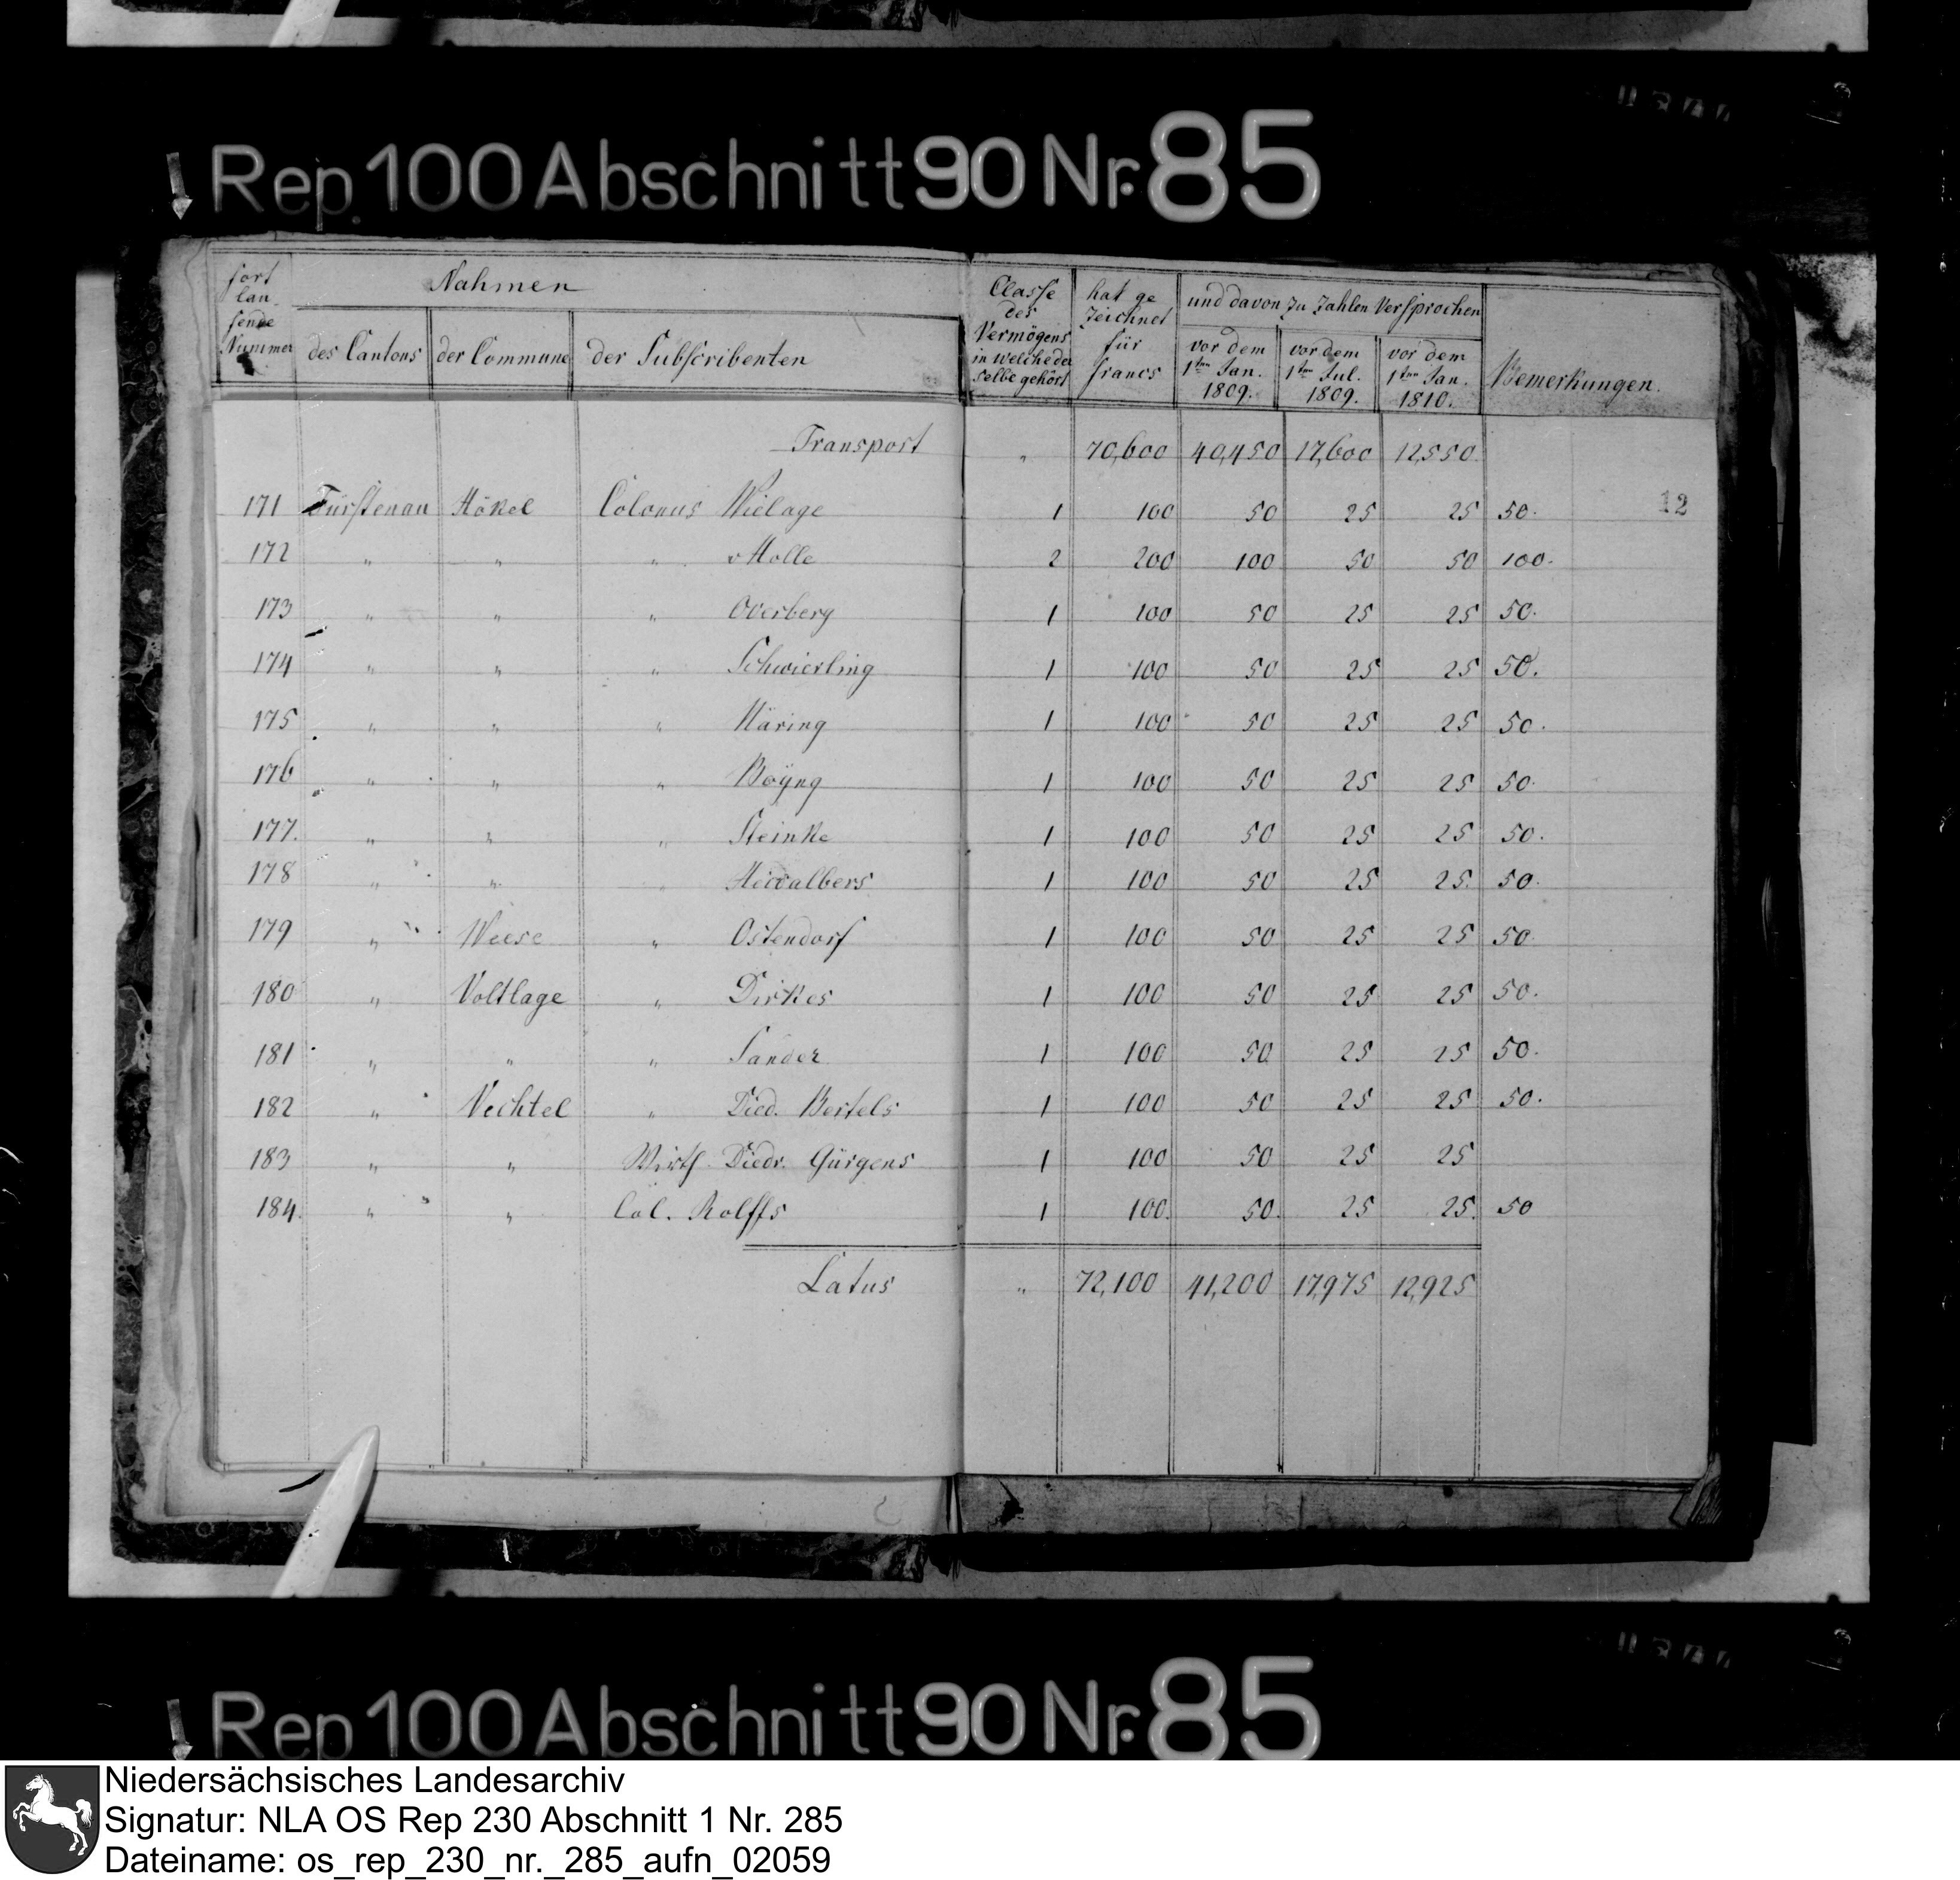 Rep 100 Abschnitt 90 Nr. 85
fort lau- fende Nummer
Nahmen
des Cantons
der Commune
der Subscribenten
Classe des Vermögens in welche der selbe gehört
hat ge zeichnet für francs
und davon zu zahlen versprochen
vor dem 1ten Jan. 1809.
vor dem 1ten Jul. 1809.
vor dem 1ten Jan. 1810.
Bemerkungen.
Transport " 70,600 40,450 17,600 12,550.
171 Fürstenau Hökel Colonus Wielage 1 100 50 25 25 50.
12
172 " " " v Holle 2 200 100 50 50 100.
173 " " " Overberg 1 100 50 25 25 50.
174 " " " Schwierling 1 100 50 25 25 50.
175 " " " Häring 1 100 50 25 25 50.
176 " " " Boÿng 1 100 50 25 25 50.
177. " " " Steinke 1 100 50 25 25 50.
178 " " " 1 100 50 25 25. 50.
179 " Weese " Ostendorf 1 100 50 25 25 50.
180 " Voltlage " Dirkes 1 100 50 25 25 50.
181 " " " Sander 1 100 50 25 25 50.
182 " Vechtel " Died. Bertels 1 100 50 25 25 50.
183 " " Wirth Diedr. Gürgens 1 100 50 25 25
184. " " Col. Rolffs 1 100. 50. 25 25. 50
Latus " 72,100 41,200 17,975 12,925
Rep 100 Abschnitt 90 Nr. 85
Niedersächsisches Landesarchiv
Signatur: NLA OS Rep 230 Abschnitt 1 Nr. 285
Dateiname: os_rep_230_nr._285_aufn_02059